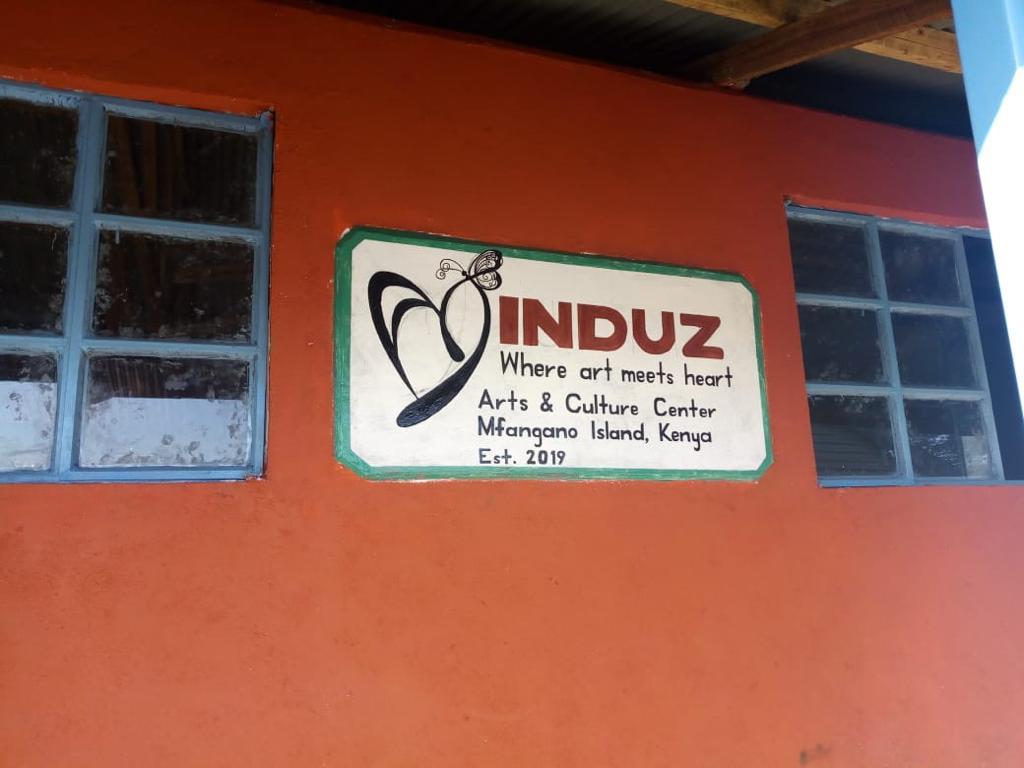 INDUZ
Where art meets heart
Arts & Culture Center
Mfangano Island, Kenya
Est. 2019